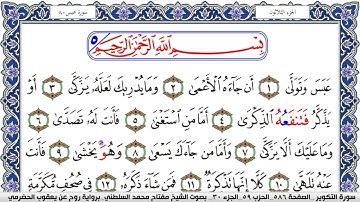 الجزء الثلاثون سورة عبس ٨٠
بِسْمِ ٱللَّهِ ٱلرَّحْمَٰنِ ٱلرَّحِيمِ
عَبَسَ وَتَوَلَّىٰ ١ أَن جَآءَهُ ٱلْأَعْمَىٰ ٢ وَمَا يُدْرِيكَ لَعَلَّهُۥ يَزَّكَّىٰ ٣ أَوْ
يَذَّكَّرُ فَتَنفَعُهُ ٱلذِّكْرَىٰ ٤ أَمَّا مَنِ ٱسْتَغْنَىٰ ٥ فَأَنتَ لَهُۥ تَصَدَّىٰ ٦
وَمَا عَلَيْكَ أَلَّا يَزَّكَّىٰ ٧ وَأَمَّا مَن جَآءَكَ يَسْعَىٰ ٨ وَهُوَ يَخْشَىٰ ٩ فَأَنتَ
عَنْهُ تَلَهَّىٰ ١٠ كَلَّآ إِنَّهَا تَذْكِرَةٌ ١١ فَمَن شَآءَ ذَكَرَهُۥ ١٢ فِى صُحُفٍ مُّكَرَّمَةٍ
سورة التكوير الصفحة ٥٨٦ الحزب ٥٩ الجزء ٣٠ بصوت الشيخ مفتاح محمد السلطني برواية روح عن يعقوب الحضرمي